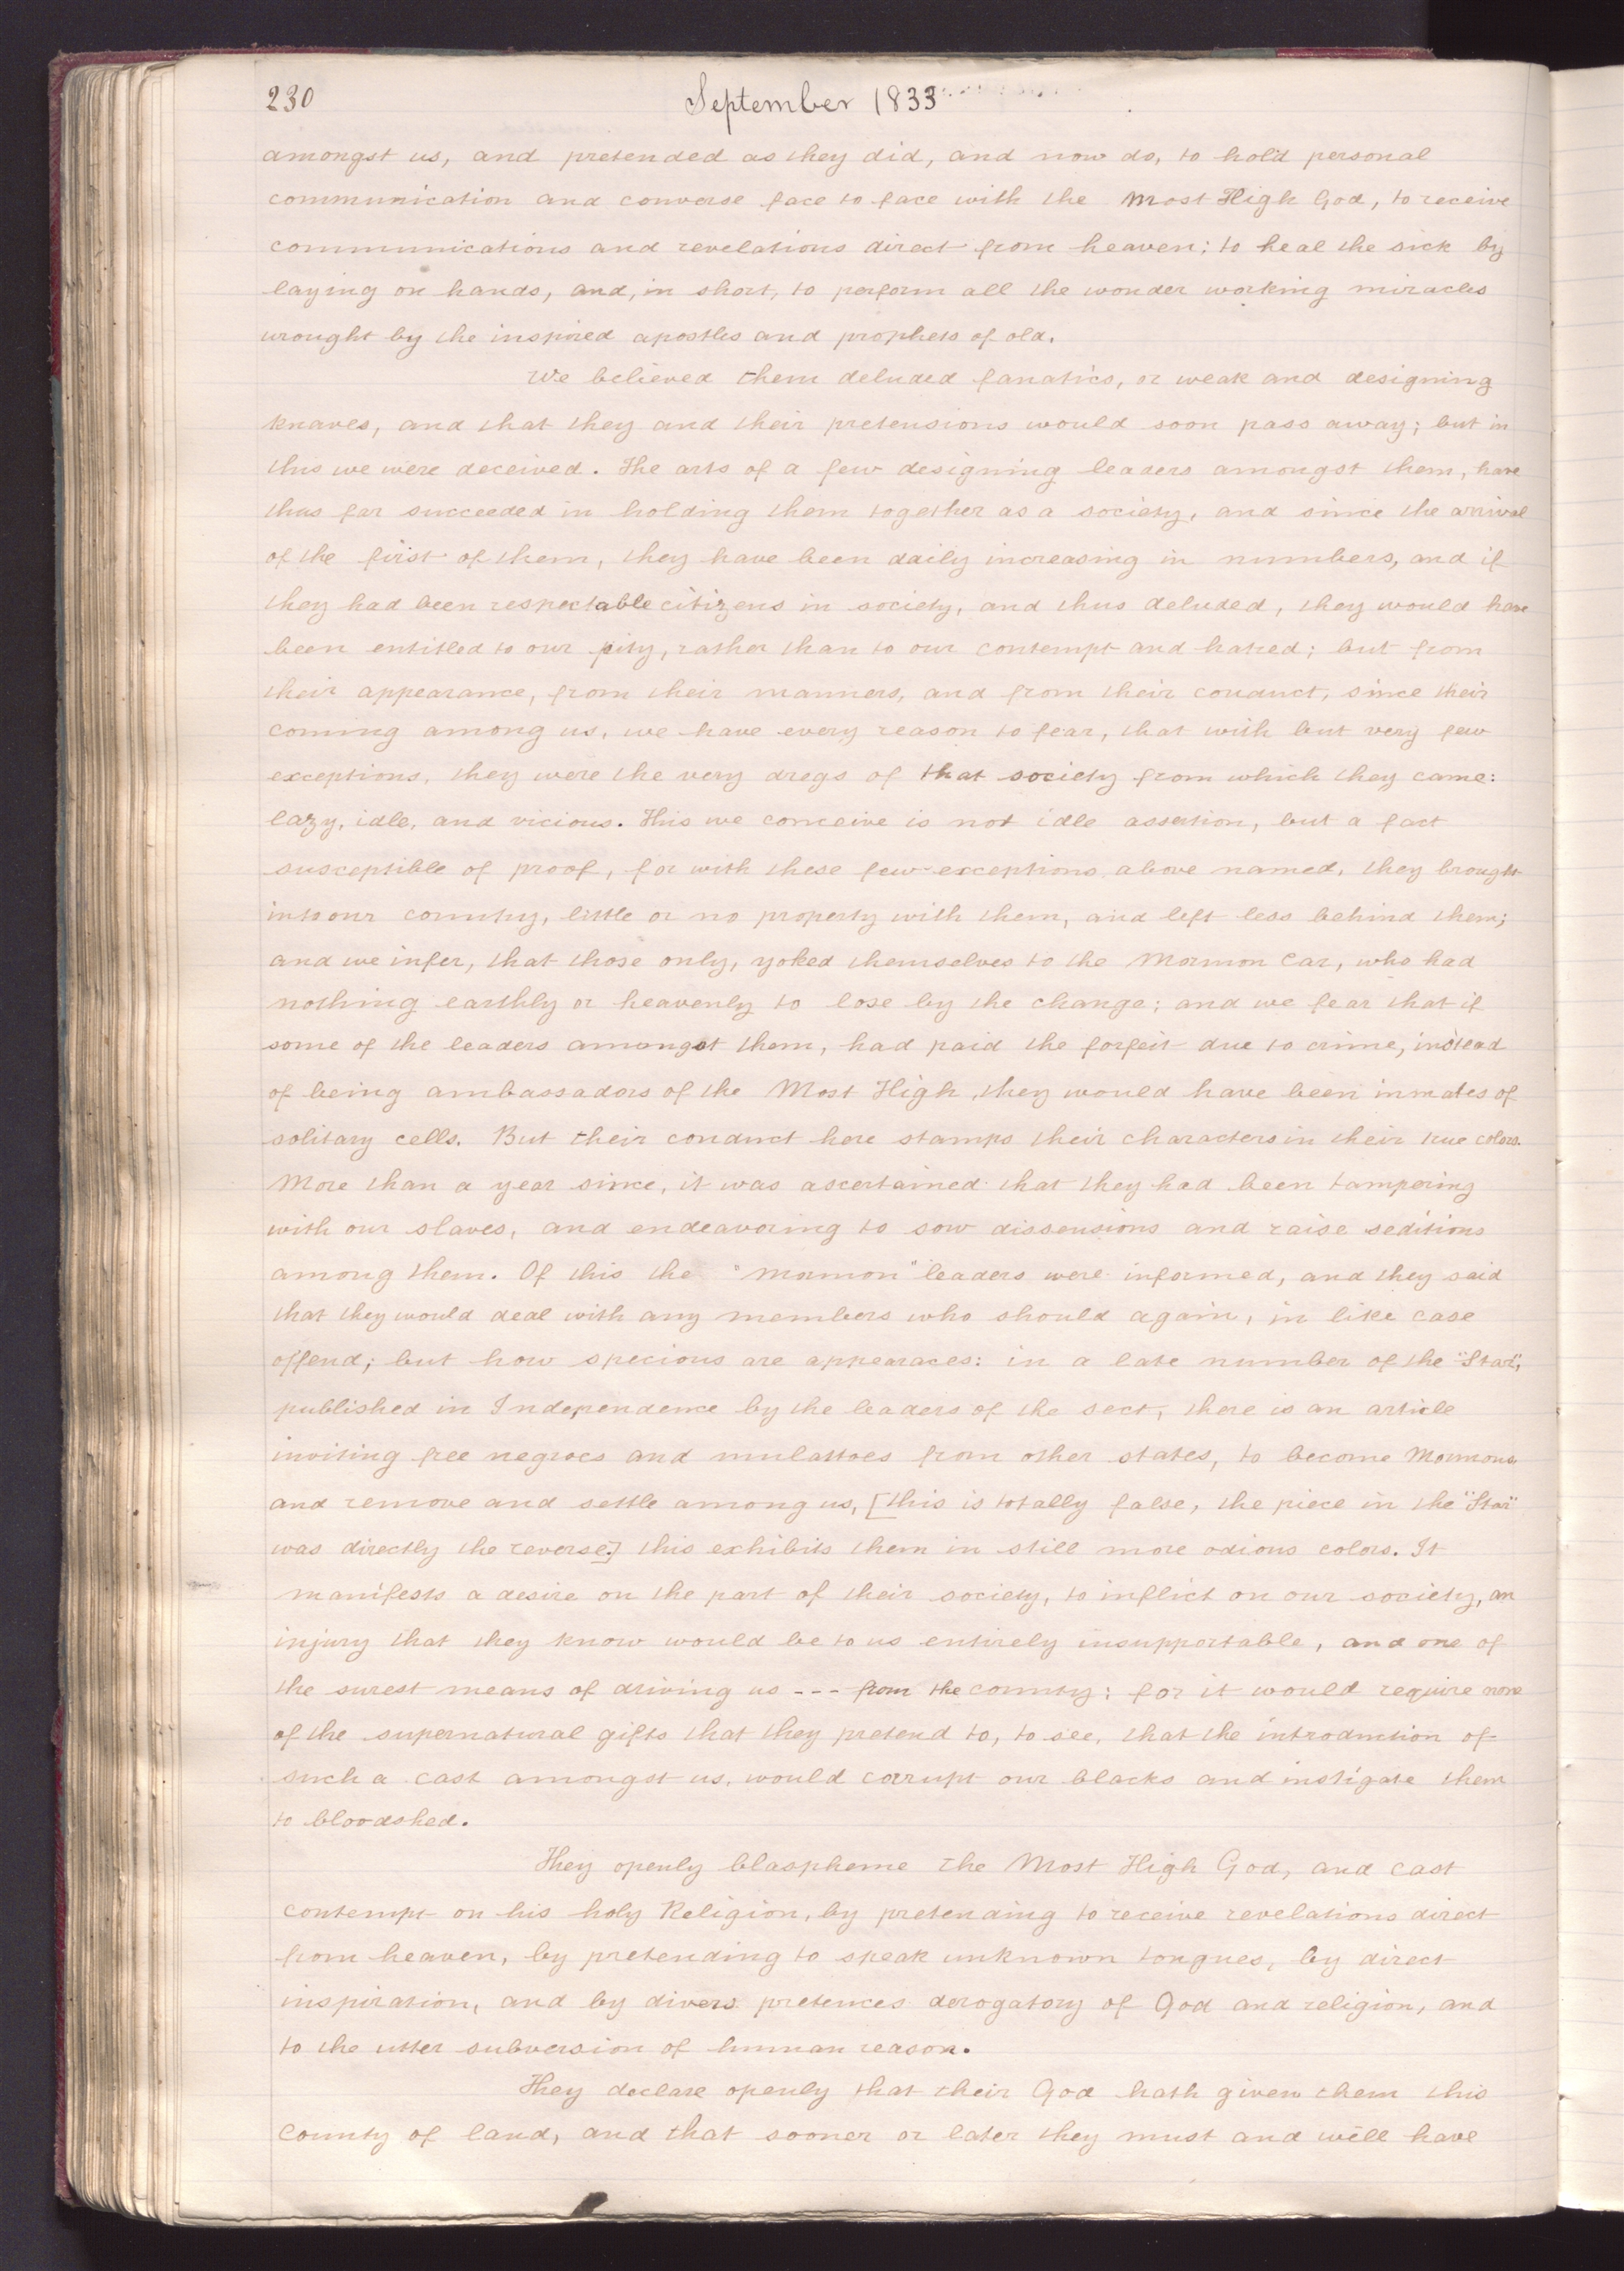 230
September 1833
amongst us, and pretended as they did, and now do, to hold personal
communication and converse face to face with the Most High God, to receive
communications and revelations direct from heaven; to heal the sick by
laying on hands, and, in short, to perform all the wonder working miracles
wrought by the inspired apostles and prophets of old.
We believed them deluded fanatics, or weak and designing
knaves, and that they and their pretensions would soon pass away; but in
this we were deceived. The arts of a few designing leaders amongst them, have
thus far succeeded in holding them together as a society, and since the arrival
of the first of them, they have been daily increasing in numbers, and if
they had been respectable citizens in society, and thus deluded, they would have
been entitled to our pity, rather than to our contempt and hatred; but from
their appearance, from their manners, and from their conduct, since their
coming among us, we have every reason to fear, that with but very few
exceptions, they were the very dregs of that society from which they came:
lazy, idle, and vicious. This we conceive is not idle assertion, but a fact
susceptible of proof, for with these few exceptions above named, they brought
into our country, little or no property with them, and left less behind them;
and we infer, that those only, yoked themselves to the Mormon Car, who had
nothing earthly or heavenly to lose by the change; and we fear that if
some of the leaders amongst them, had paid the forfeit due to crime, instead
of being ambassadors of the Most High, they would have been inmates of
solitary cells. But their conduct here stamps their characters in their true colors.
More than a year since, it was ascertained that they had been tampering
with our slaves, and endeavoring to sow dissensions and raise seditions
among them. Of this the "Mormon" leaders were informed, and they said
that they would deal with any members who should again, in like case
offend; but how specious are appearaces: in a late number of the "Star",
published in Independence by the leaders of the sect, there is an article
inviting free negroes and mulattoes from other states, to become Mormons
and remove and settle among us, [this is totally false, the piece in the "Star"
was directly the reverse.] this exhibits them in still more odious colors. It
manifests a desire on the part of their society, to inflict on our society, an
injury that they know would be to us entirely insupportable, and one of
the surest means of driving us --- from the county; for it would require none
of the supernatural gifts that they pretend to, to see, that the introduction of
such a cast amongst us, would corrupt our blacks and instigate them
to bloodshed.
They openly blaspheme the Most High God, and cast
contempt on his holy Religion, by pretending to receive revelations direct
from heaven, by pretending to speak unknown tongues, by direct
inspiration, and by divers pretences derogatory of God and religion, and
to the utter subversion of human reason.
They declare openly that their God hath given them this
County of land, and that sooner or later they must and will have